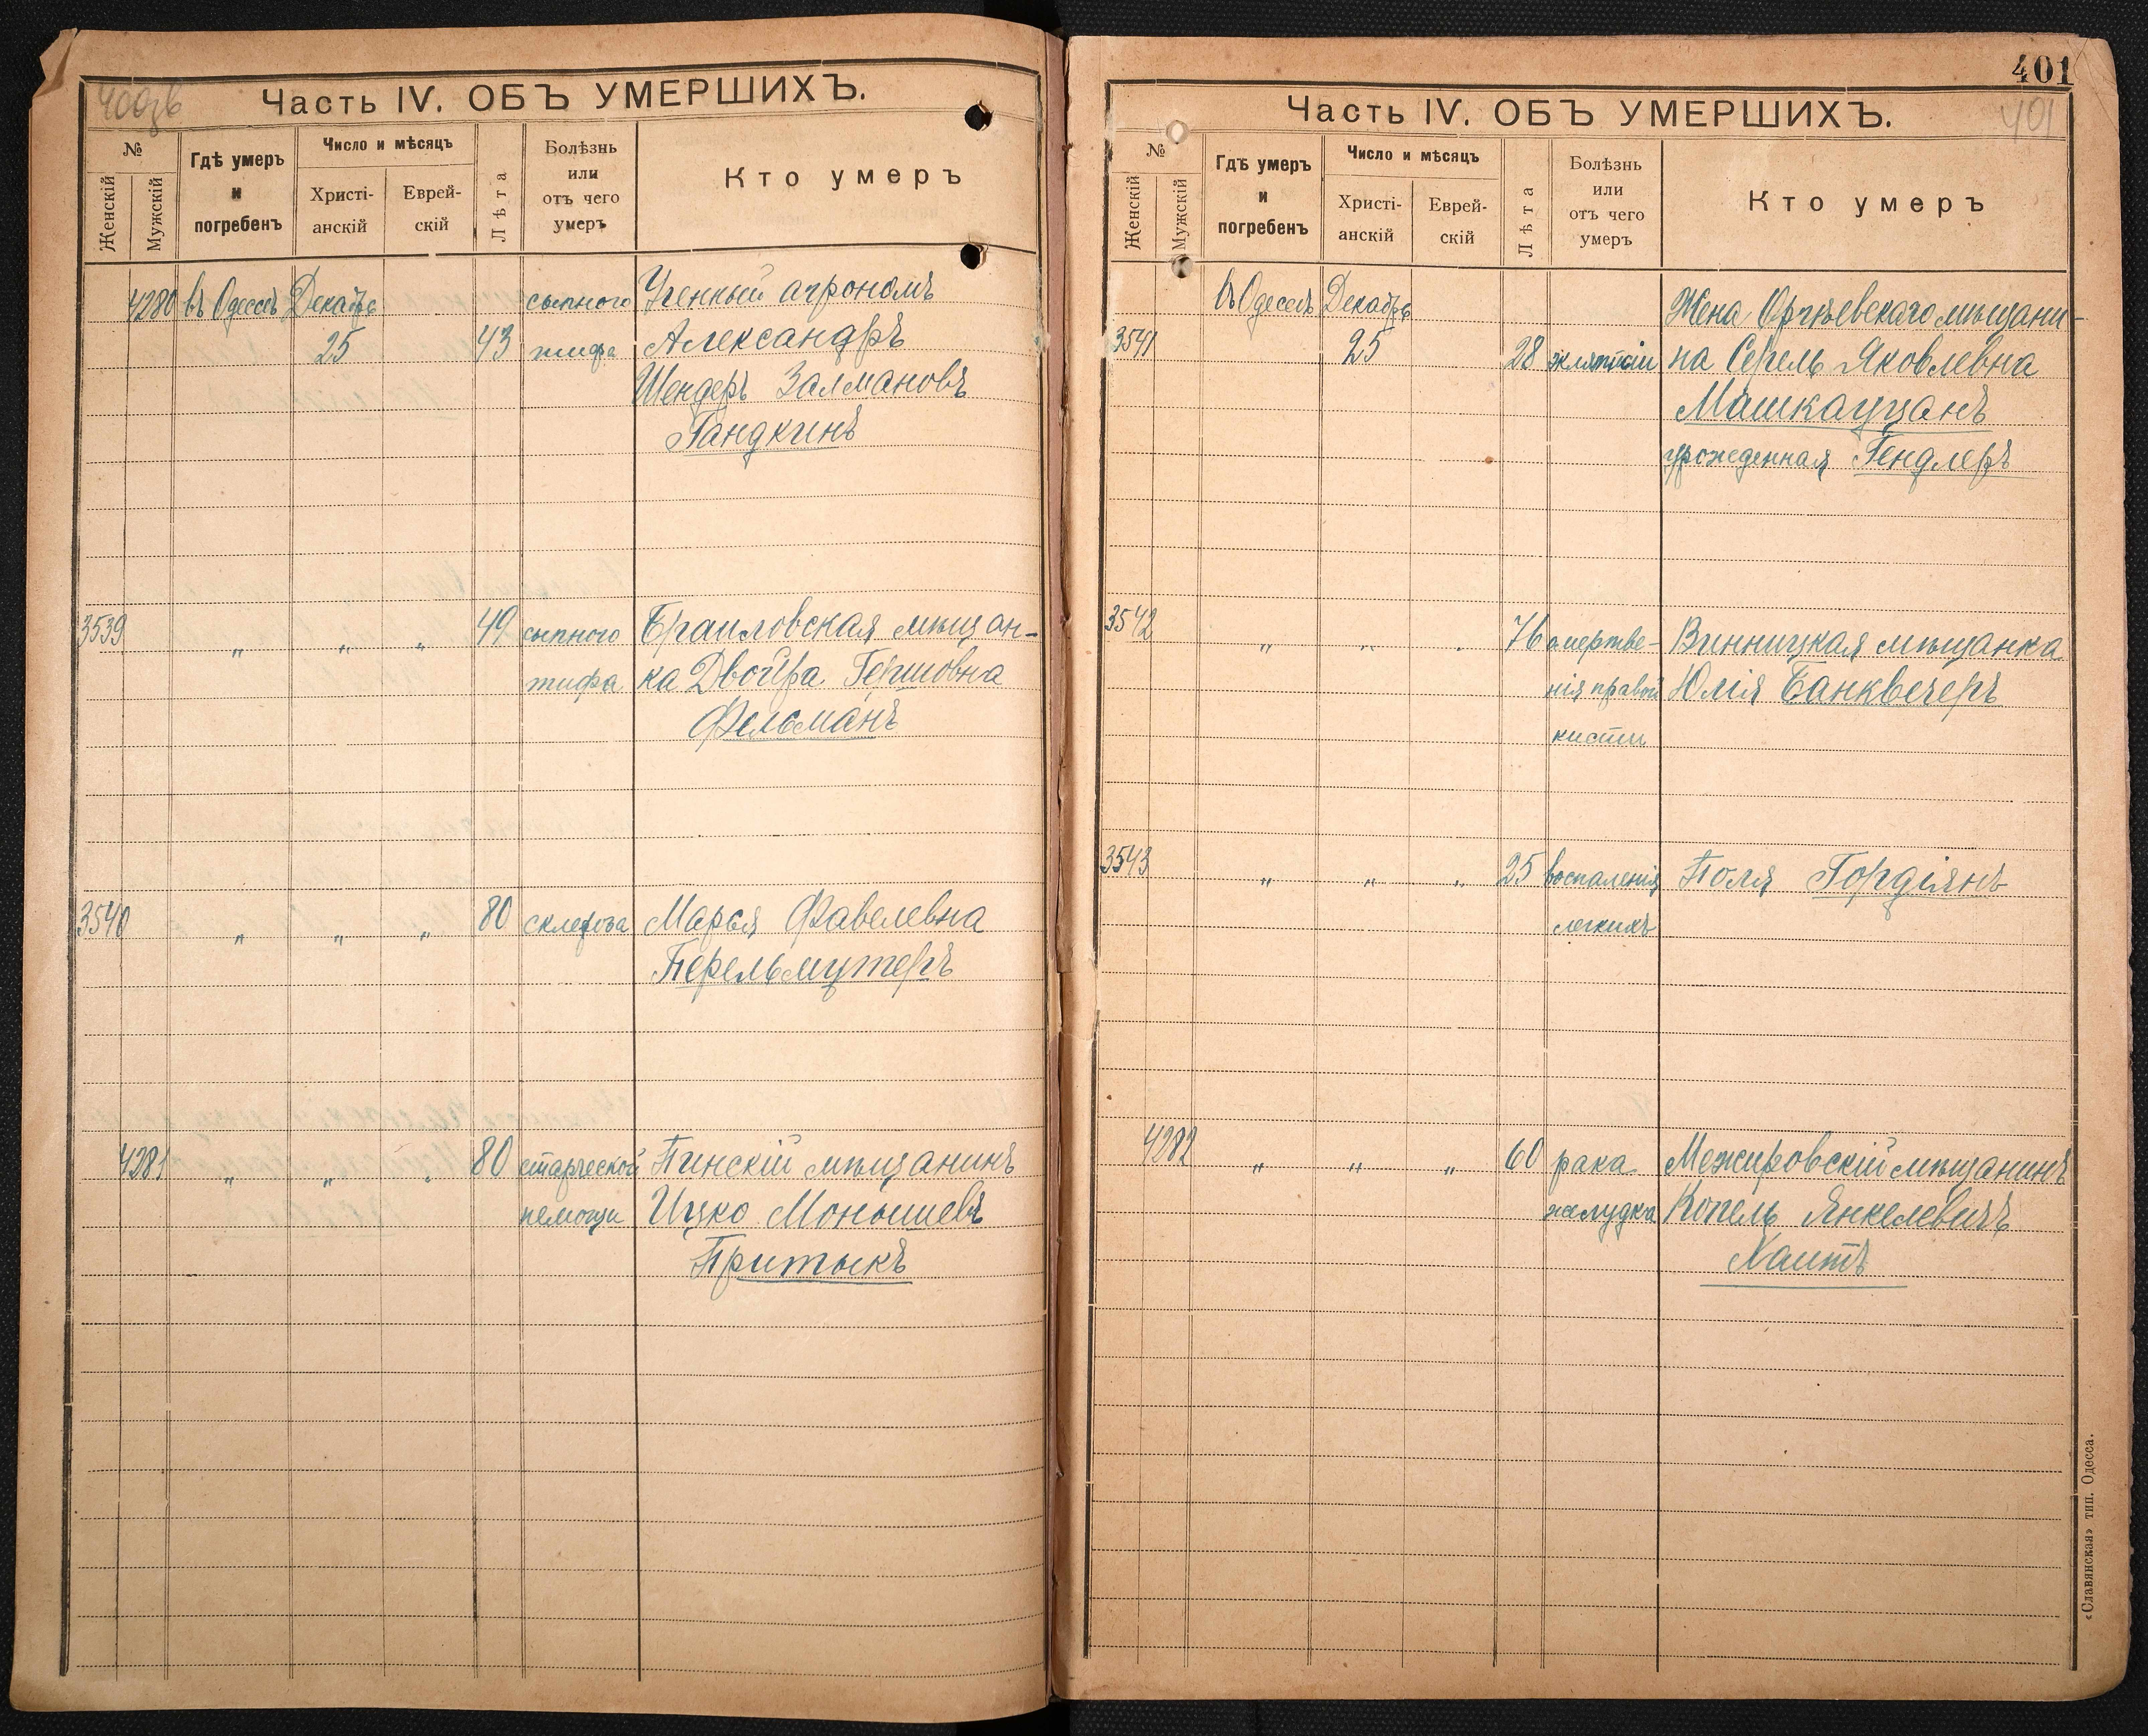 400об
Часть IV. ОБЪ УМЕРШИХЪ.
№
Женскій
Мужскій
Гдѣ умеръ
и
погребенъ
Число и мѣсяцъ
Христі-
анскій
Еврей-
скій
Лѣта
Болѣзнь
или
отъ чего
умеръ
Кто умеръ
4280 въ Одессѣ Декабрь сыпного Ученый агрономъ
25 43 тифа Александръ
Шендеръ Залмановъ
Гандкинъ
3539 „ „ „ 49 сыпного Браиловская мѣщан-
тифа ка Двойра Гершовна
Фельманъ
3540 „ „ „ 80 склероза Марья Фавелевна
Перельмутеръ
4281 „ „ „ 80 старческой Пинскій мѣщанинъ
немощи Ицко Моньшевъ
Притыкъ
401
401
Часть IV. ОБЪ УМЕРШИХЪ.
№
Женскій
Мужскій
Гдѣ умеръ
и
погребенъ
Число и мѣсяцъ
Христі-
анскій
Еврей-
скій
Лѣта
Болѣзнь
или
отъ чего
умеръ
Кто умеръ
въ Одессѣ Декабрь Жена Оргѣевскаго мѣщани-
3541 25 28 на Серель Яковлевна
Машкауцанъ
урожденная Гендлеръ
3542 „ „ „ 76 омертве- Винницкая мѣщанка
нія правой Юлія Банквечеръ
кисти
3543 „ „ „ 25 воспаленія Поля Гордіянъ
легкихъ
4282 „ „ „ 60 рака Межировскій мѣщанинъ
желудка Копель Янкелевичъ
Хаитъ
«Славянская» тип. Одесса.